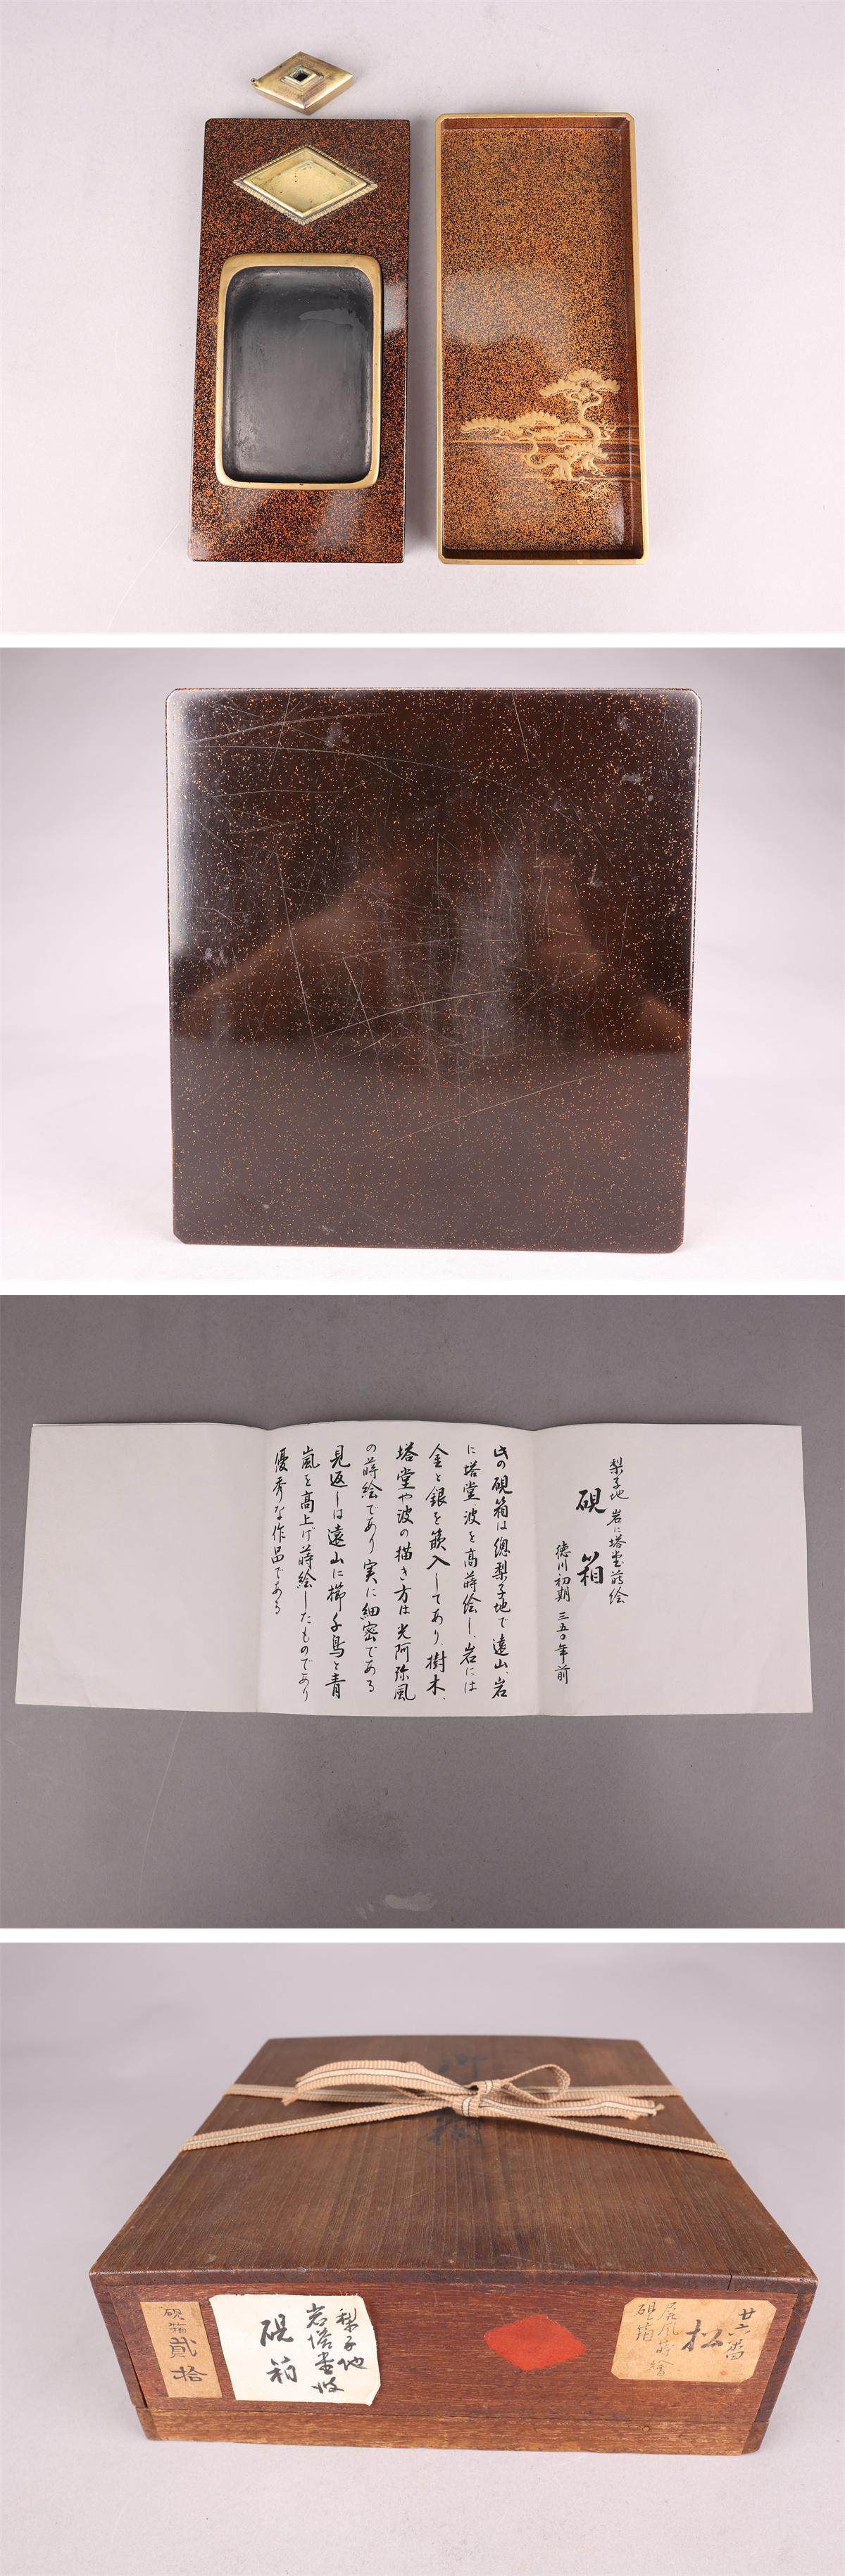 梨子地 岩に塔堂蒔絵
硯箱
徳川初期 三五〇年前
此の硯箱は總梨子地で遠山、岩
に塔堂波を高蒔絵し、岩には
金と銀を篏入してあり、樹木、
塔堂や波の描き方は光阿弥風
の蒔絵であり実に細密である
見返しは遠山に楼千鳥と青
嵐を高上げ蒔絵したものであり
優秀な作品である
硯箱
貳拾
梨子地
岩塔堂波
硯箱
廿六番
松
蒔繪
硯箱